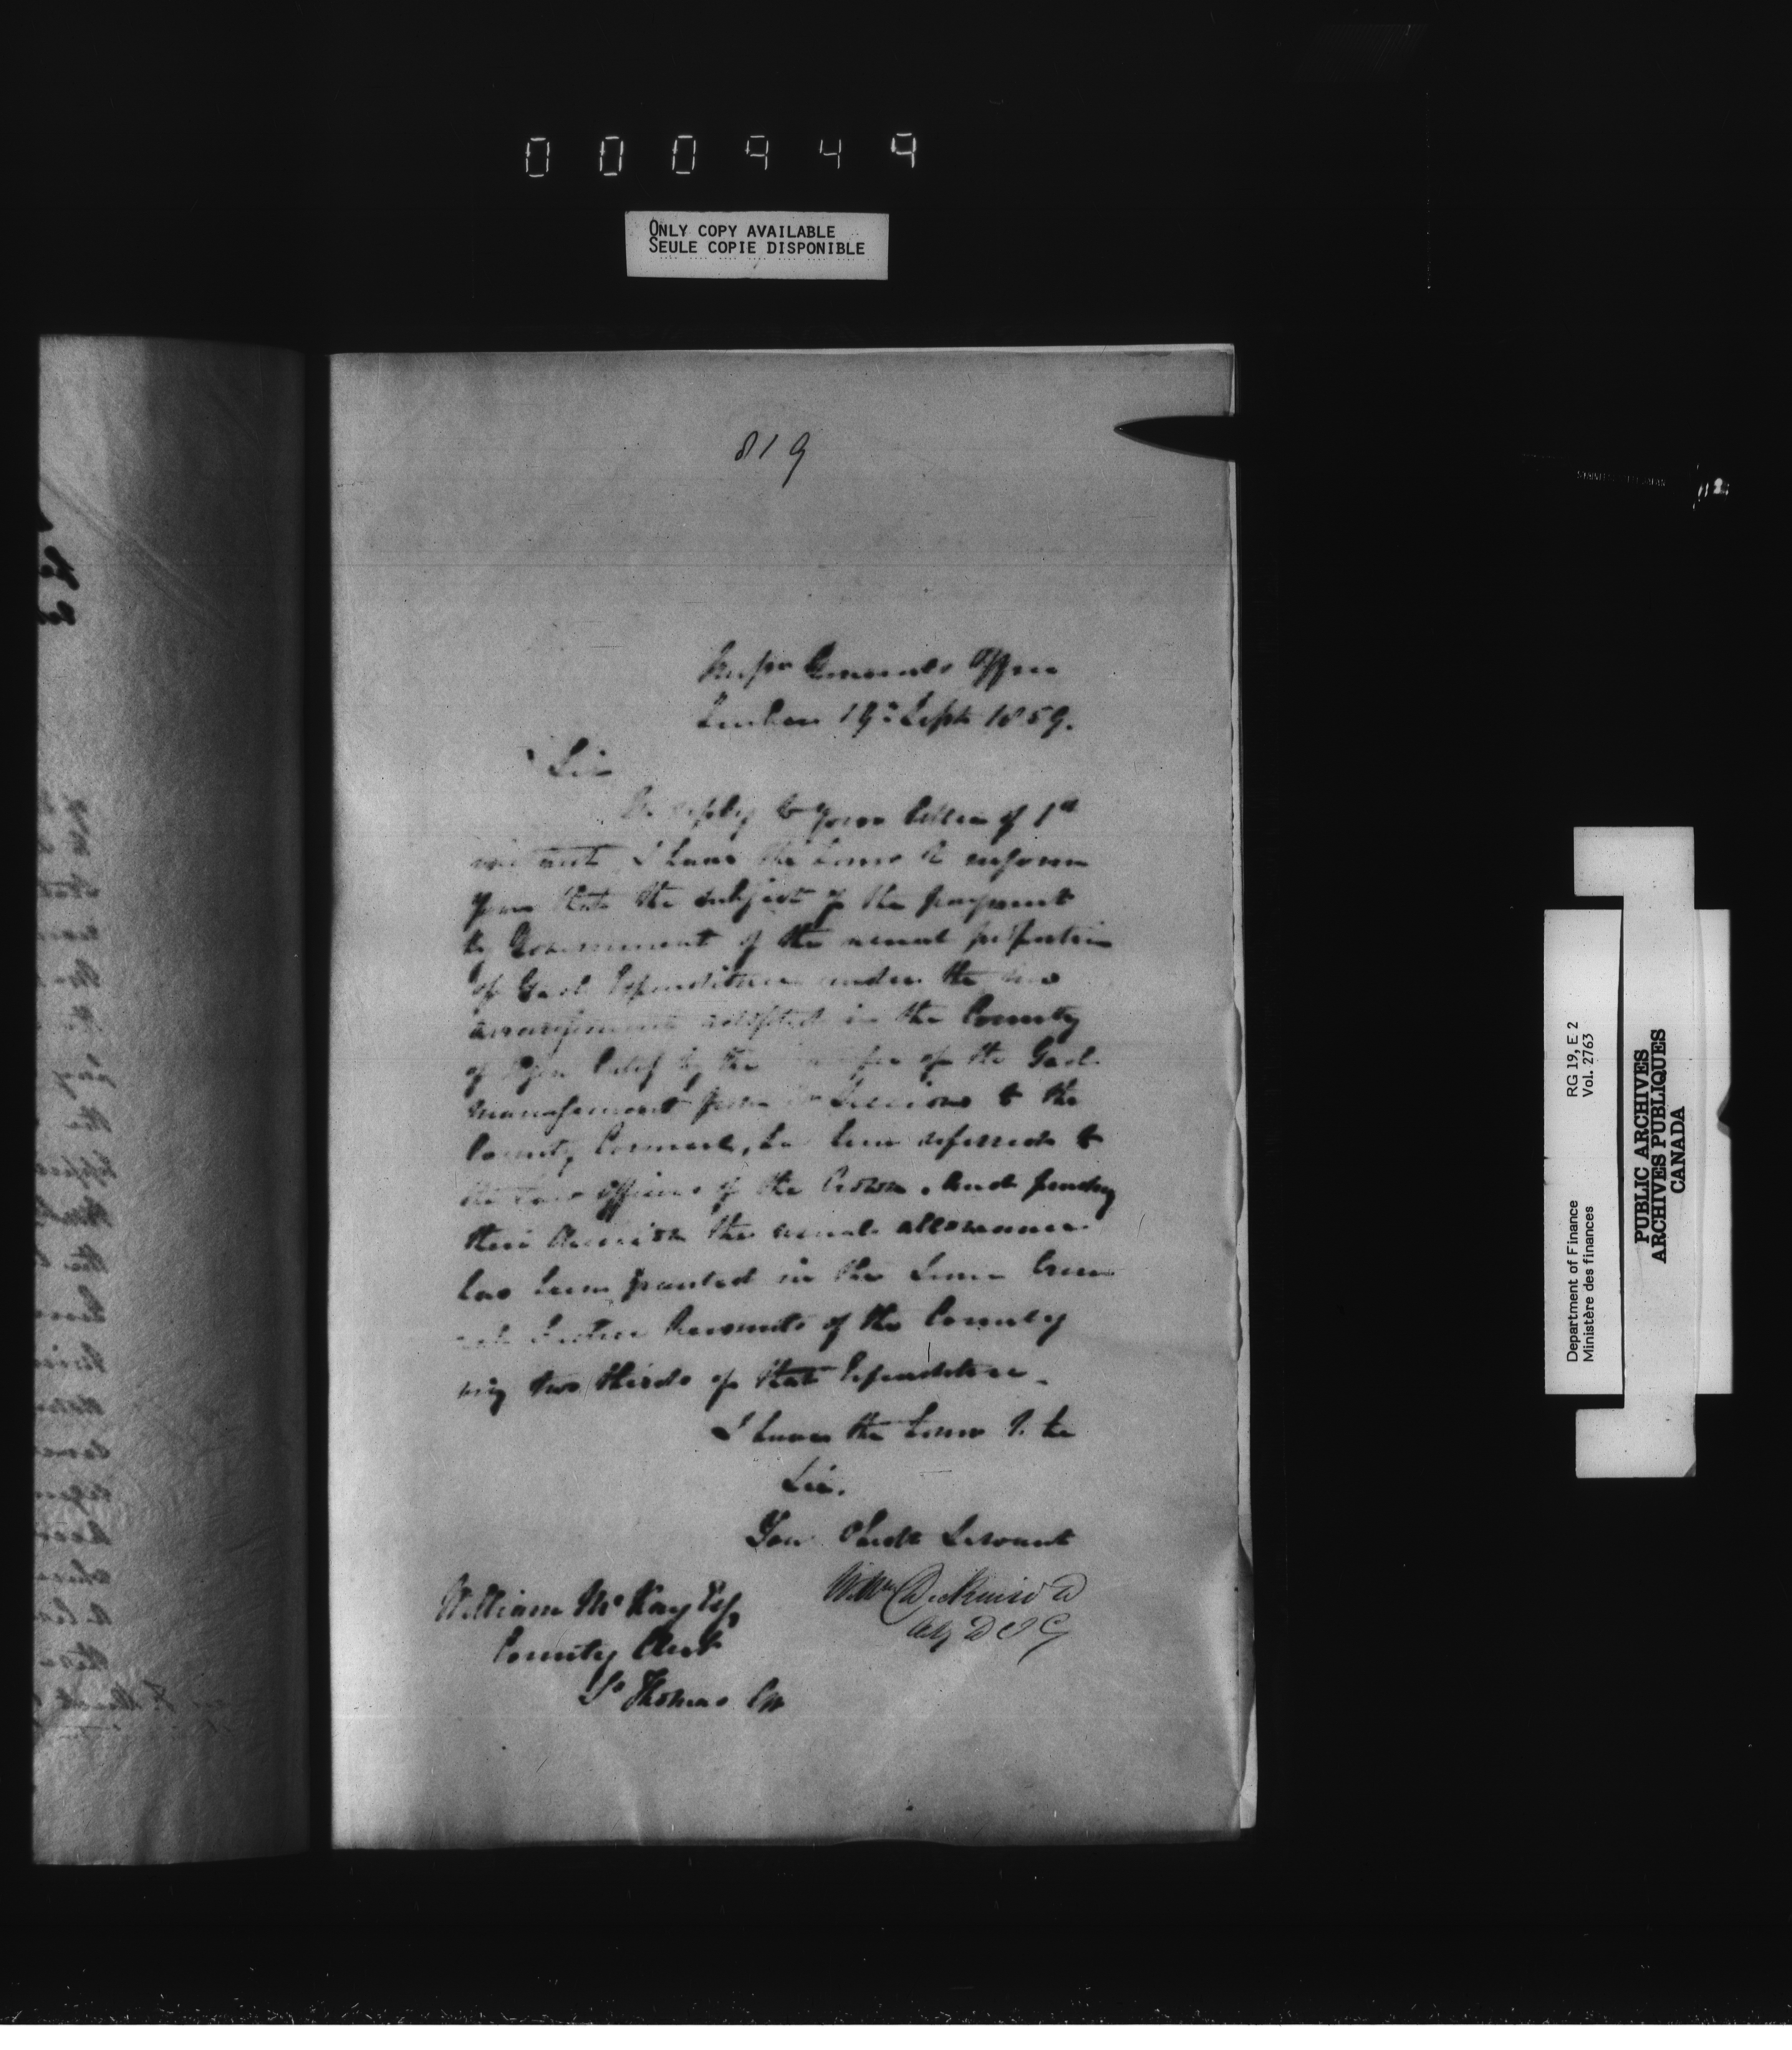 000949
ONLY COPY AVAILABLE
SEULE COPIE DISPONIBLE
819
Inspr Generals Office
Quebec 19th Septr 1859.
Sir
In reply to your letter of 1st
instant I have the honor to inform
you that the subject of the payment
by Government of the usual proportion
of Gaol Expenditure under the new
arrangement adopted in the County
of Elgin by the transfer of the Gaol
management from Sessions to the
County Council, has been referred to
the Law Officers of the Crown, and pending
their decision the usual allowance
has been granted in the
Justice Accounts of the County
two thirds of that Expenditure.
I have the honor to be
Sir.
Your Obedt Servant
Wm Dickinson
Actg D I G
William McKay Esq
County Clerk
St Thomas CW
Department of Finance RG 19, E 2
Ministère des finances Vol. 2763
PUBLIC ARCHIVES
ARCHIVES PUBLIQUES
CANADA